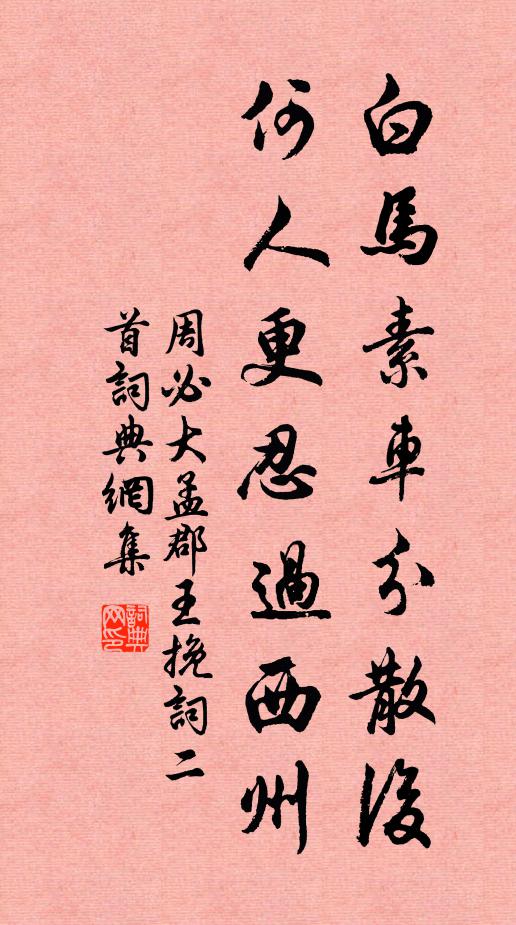 白馬素車分散後
何人更忍過西州
周必大孟郡王挽詞二
首詞典網集
詞典網印